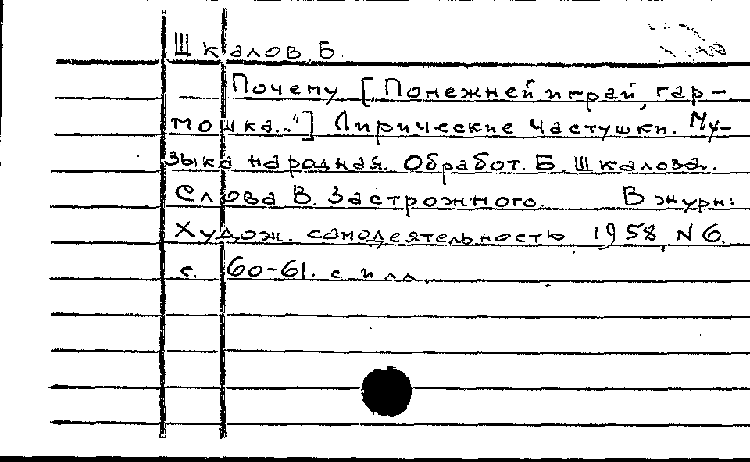 Шкалов Б.
Почему ["Понежней играй, гар-
мошка.."] Лирические частушки. Му-
зыка народная. Обработ. Б. Шкалова.
Слова В. Застрожного. В журн:
Худож. самодеятельность, 1958, N 6.
с. 60-61. с илл.